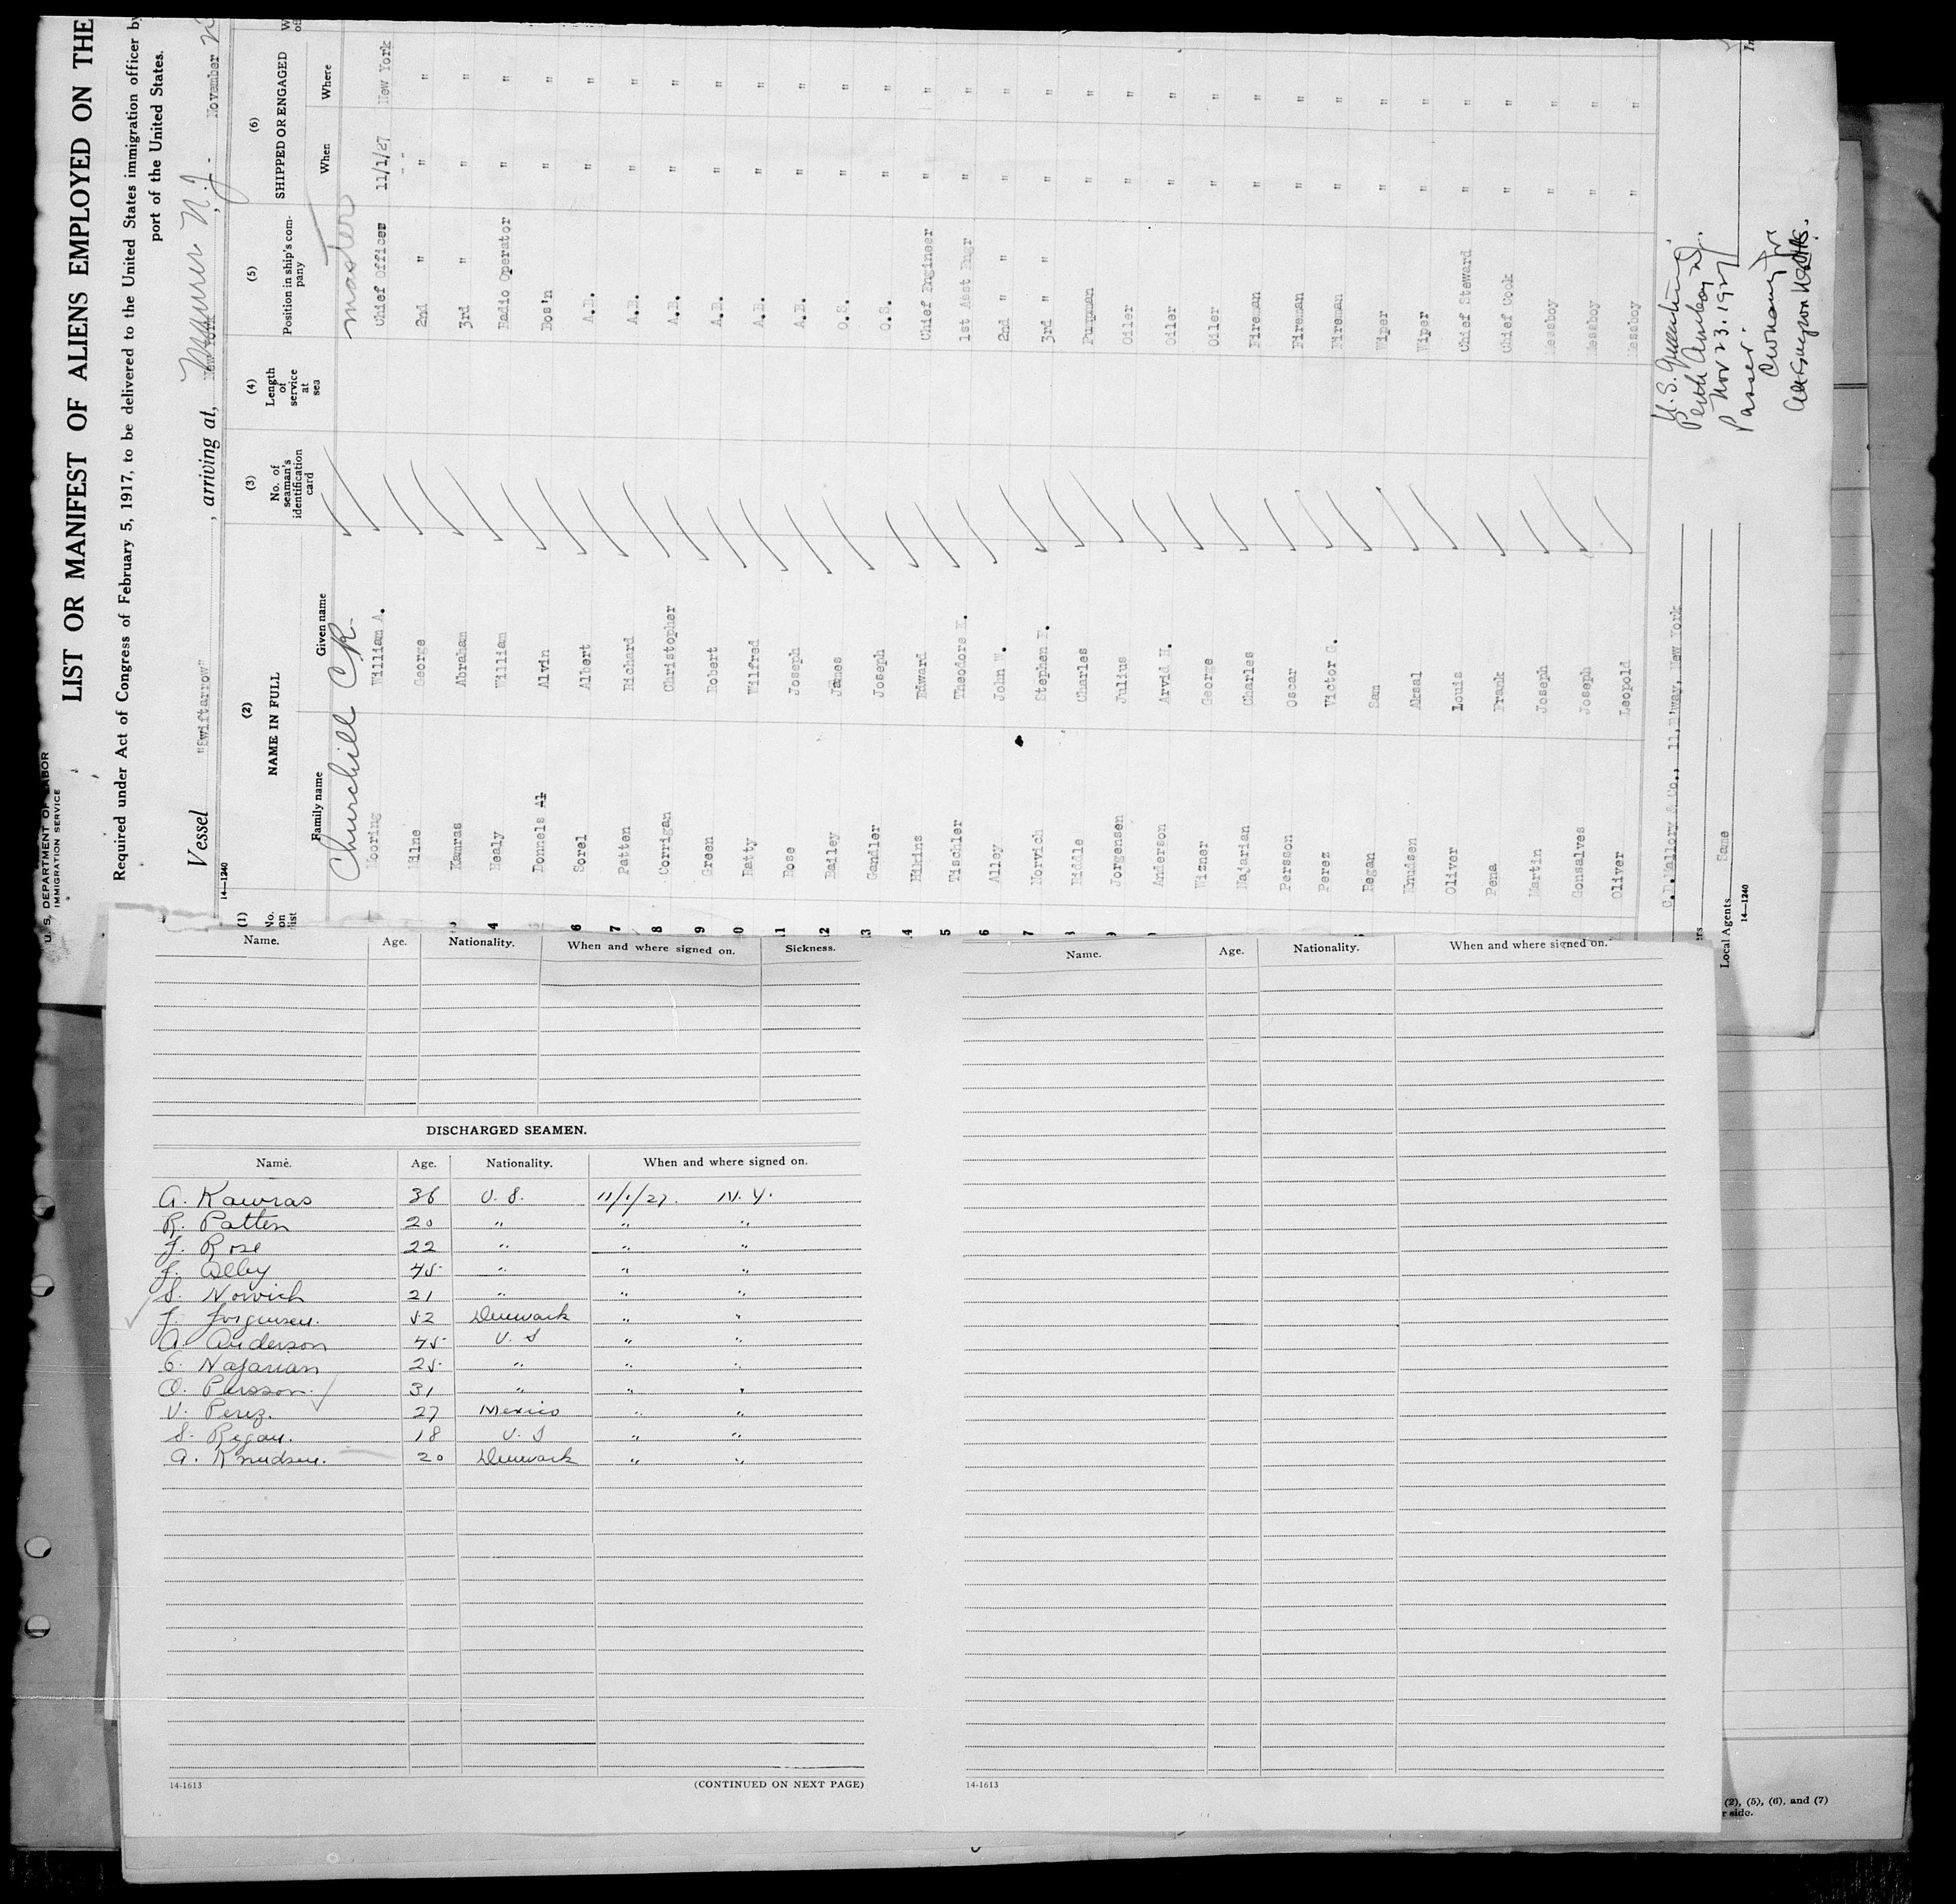 U. S. DEPARTMENT OF LABOR
IMMIGRATION SERVICE
LIST OR MANIFEST OF ALIENS EMPLOYED ON THE
Required under Act of Congress of February 5, 1917, to be delivered to the United States immigration officer by
port of the United States.
Vessel "Swiftarrow", arriving at, New York Maurer N.J. November
14—1240
(1) (2) (3) (4) (5) (6)
No. on list NAME IN FULL No. of seaman's identification card Length of service at sea Position in ship's company SHIPPED OR ENGAGED
Family name Given name When Where
Churchill C R. master
Mooring William A. Chief Officer 11/1/27 New York
Milne George 2nd " " "
Kawras Abraham 3rd " " "
4 Healy William Radio Operator " "
Donnels Al Alvin Bos'n " "
6 Sorel Albert A.B. " "
7 Patten Richard A.B. " "
8 Corrigan Christopher A.B. " "
9 Green Robert A.B. " "
0 Batty Wilfred A.B. " "
11 Rose Joseph A.B. " "
12 Bailey James O.S. " "
13 Gandler Joseph O.S. " "
4 Hikins Edward Chief Engineer " "
5 Tischler Theodore K. 1st Asst Engr " "
6 Alley John W. 2nd " " " "
7 Norvich Stephen F. 3rd " " " "
8 Riddle Charles Pumpman " "
9 Jorgensen Julius Oiler " "
Anderson Arvid H. Oiler " "
Wizner George Oiler " "
Najarian Charles Fireman " "
Persson Oscar Fireman " "
Perez Victor G. Fireman " "
Regan Sam Wiper " "
Knudsen Aksal Wiper " "
Oliver Louis Chief Steward " "
Pena Frank Chief Cook " "
Martin Joseph Messboy " "
Gonsalves Joseph Messboy " "
Oliver Leopold Messboy " "
C.D. Mallory & Co., 11, B'way, New York
Local Agents Same
14—1240
U. S. Quarantine
Perth Amboy N.J.
Nov 23. 1927
Passed
Name. Age. Nationality. When and where signed on. Sickness.
DISCHARGED SEAMEN.
Name. Age. Nationality. When and where signed on.
A. Kawras 36 U. S. 11/1/27. N. Y.
R. Patten 20 " " "
J. Rose 22 " " "
J. Alley 45 " " "
S. Norvich 21 " " "
J. Jorgensen. 52 Denmark " "
A. Anderson 45 U. S " "
C. Najarian 25 " " "
O. Persson. 31 " " "
V. Perez. 27 Mexico " "
S. Regan. 18 U. S " "
A. Knudsen. 20 Denmark " "
14-1613 (CONTINUED ON NEXT PAGE)
Name. Age. Nationality. When and where signed on.
14-1613
(2), (5), (6), and (7)
r side.